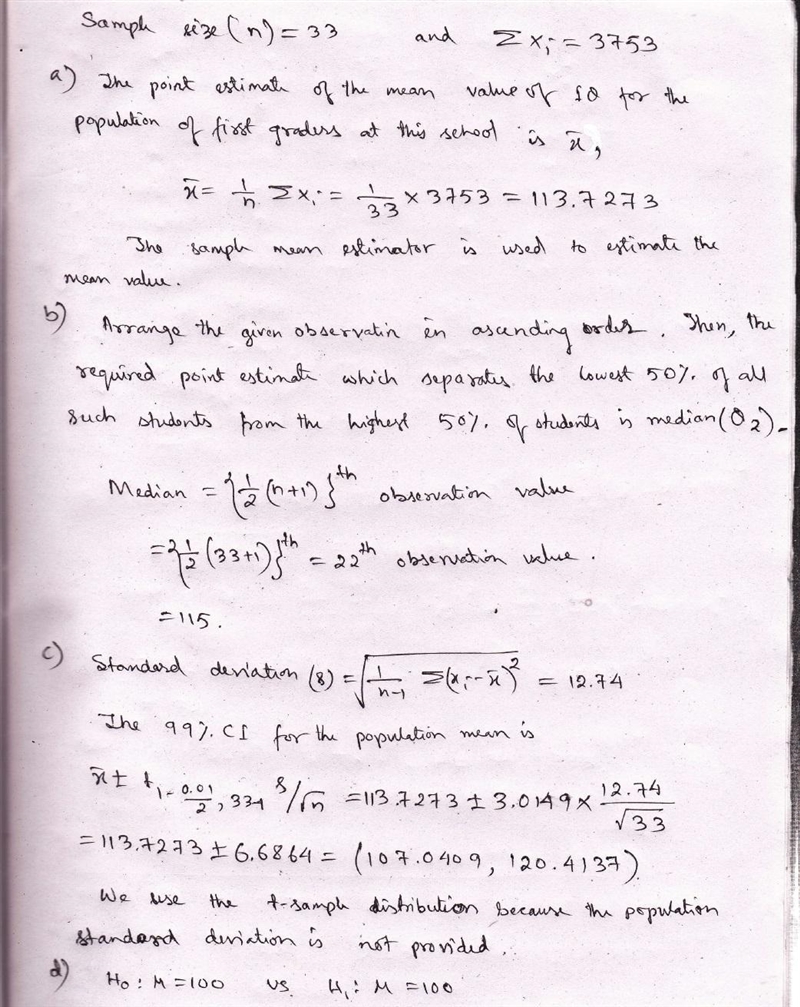 Sample size (n) = 33 and Σxᵢ = 3753
a) The point estimate of the mean value of IQ for the
population of first graders at this school is x̄,
x̄ = 1/n Σxᵢ = 1/33 × 3753 = 113.7273
The sample mean estimator is used to estimate the
mean value.
b) Arrange the given observatin in ascending order. Then, the
required point estimate which separates the lowest 50% of all
such students from the highest 50% of students is median(Q₂).
Median = {1/2 (n+1)}ᵗʰ observation value
= {1/2 (33+1)}ᵗʰ = 22ᵗʰ observation value.
= 115.
c) Standard deviation (s) = √(1/(n-1) Σ(xᵢ-x̄)²) = 12.74
The 99% CI for the population mean is
x̄ ± t₁₋ 0.01/2, 33-1 s/√n = 113.7273 ± 3.0149 × 12.74/√33
= 113.7273 ± 6.6864 = (107.0409, 120.4137)
We use the t-sample distribution because the population
standard deviation is not provided.
d) H₀ : M = 100 vs H₁ : M = 100